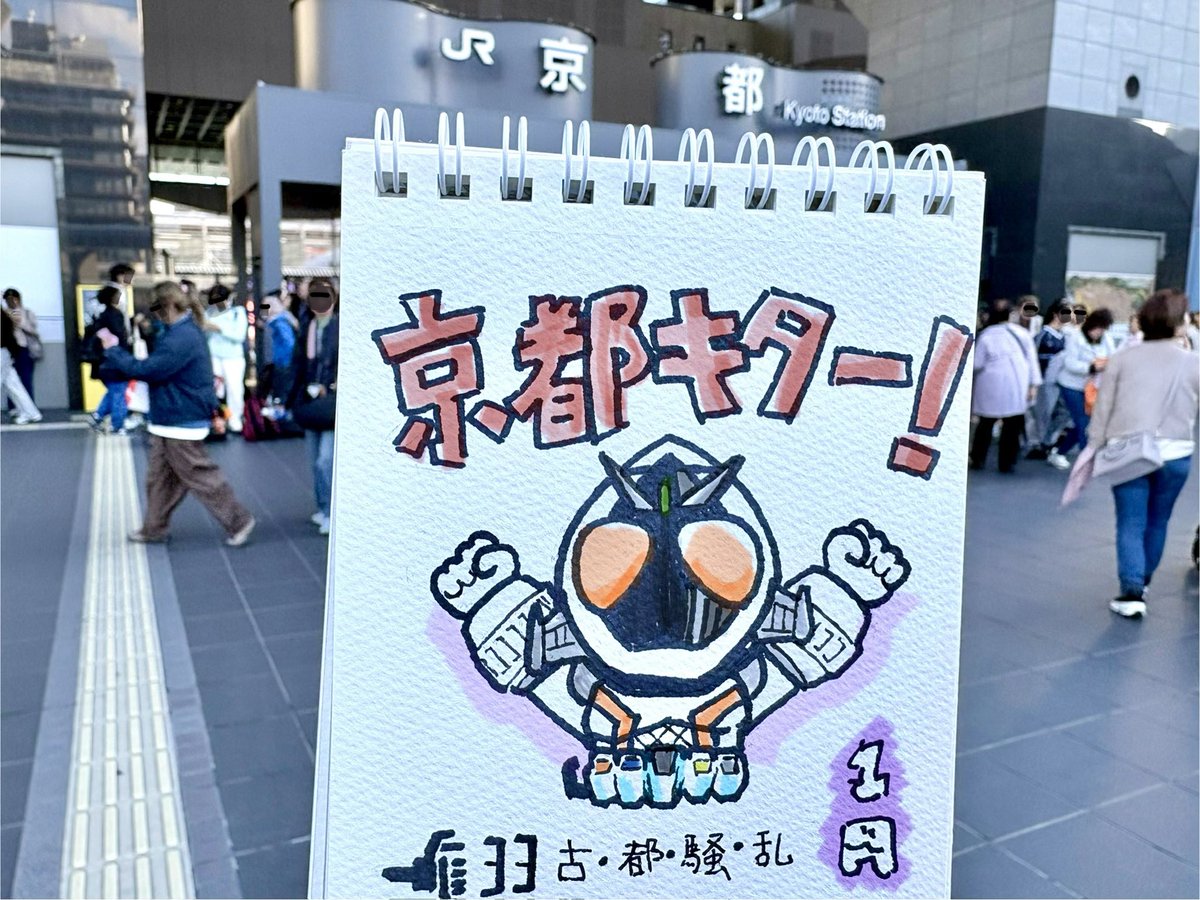 JR 京都 Kyoto Station
京都キター!
1
33 古・都・騒・乱